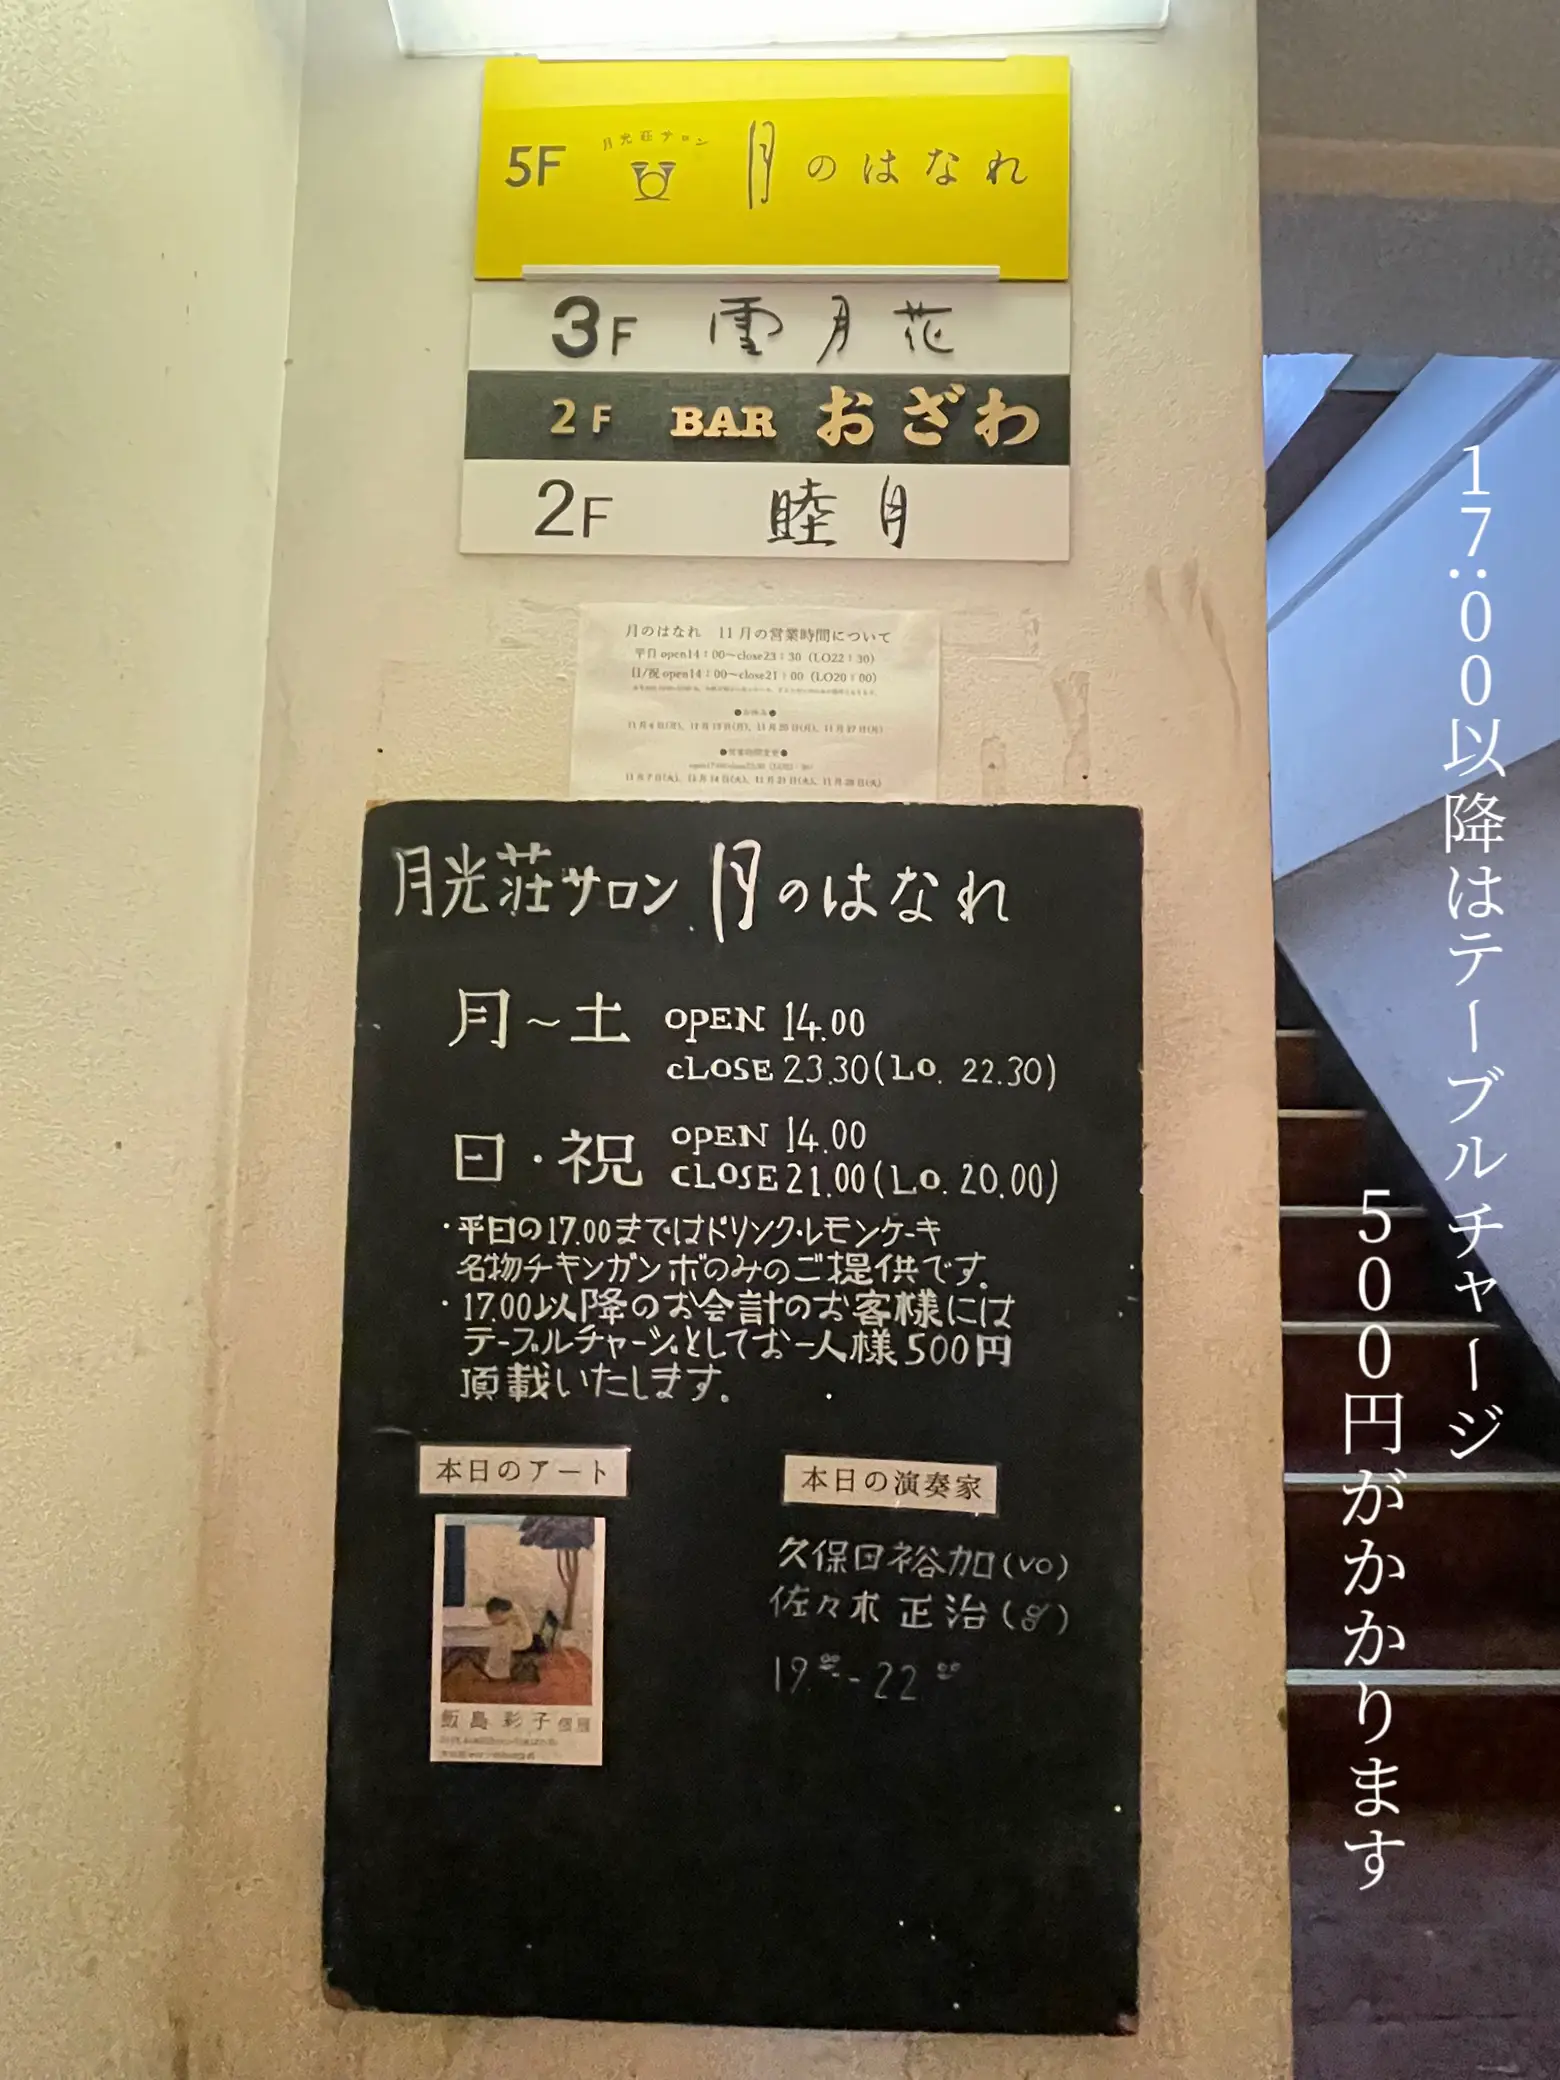 5F 月光荘サロン 月のはなれ
3F 雪月花
2F BAR おざわ
2F 睦月
月のはなれ 11月の営業時間について
平日open14:00〜close23:30 (LO22:30)
日/祝open14:00〜close21:00 (LO20:00)
●お休み●
11月6日(月)、11月13日(月)、11月20日(月)、11月27日(月)
●営業時間変更●
11月7日(火)、11月14日(火)、11月21日(火)、11月28日(火)
月光荘サロン 月のはなれ
月〜土 OPEN 14.00
CLOSE 23.30(LO. 22.30)
日・祝 OPEN 14.00
CLOSE 21.00(LO. 20.00)
・平日の17.00まではドリンク・レモンケーキ
名物チキンガンボのみのご提供です。
・17.00以降のお会計のお客様には
テーブルチャージとしてお一人様500円
頂戴いたします。
本日のアート
本日の演奏家
久保田裕加(vo)
佐々木正治(g)
19.00-22.00
飯島彩子個展
17:00以降はテーブルチャージ
500円がかかります